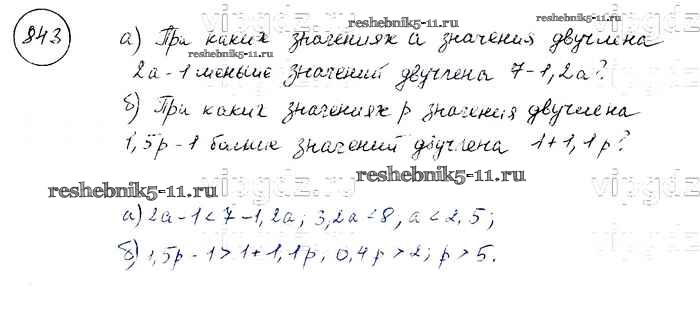 843
reshebnik5-11.ru
а) При каких значениях а значения двучлена
reshebnik5-11.ru
2а-1 меньше значений двучлена 7-1,2а?
vipgdz.ru
б) При каких значениях р значения двучлена
1,5р-1 больше значений двучлена 1+1,1р?
reshebnik5-11.ru
reshebnik5-11.ru
vipgdz.ru
а) 2а-1<7-1,2а; 3,2а<8, а<2,5;
б) 1,5р-1>1+1,1р, 0,4р>2; р>5.
reshebnik5-11.ru